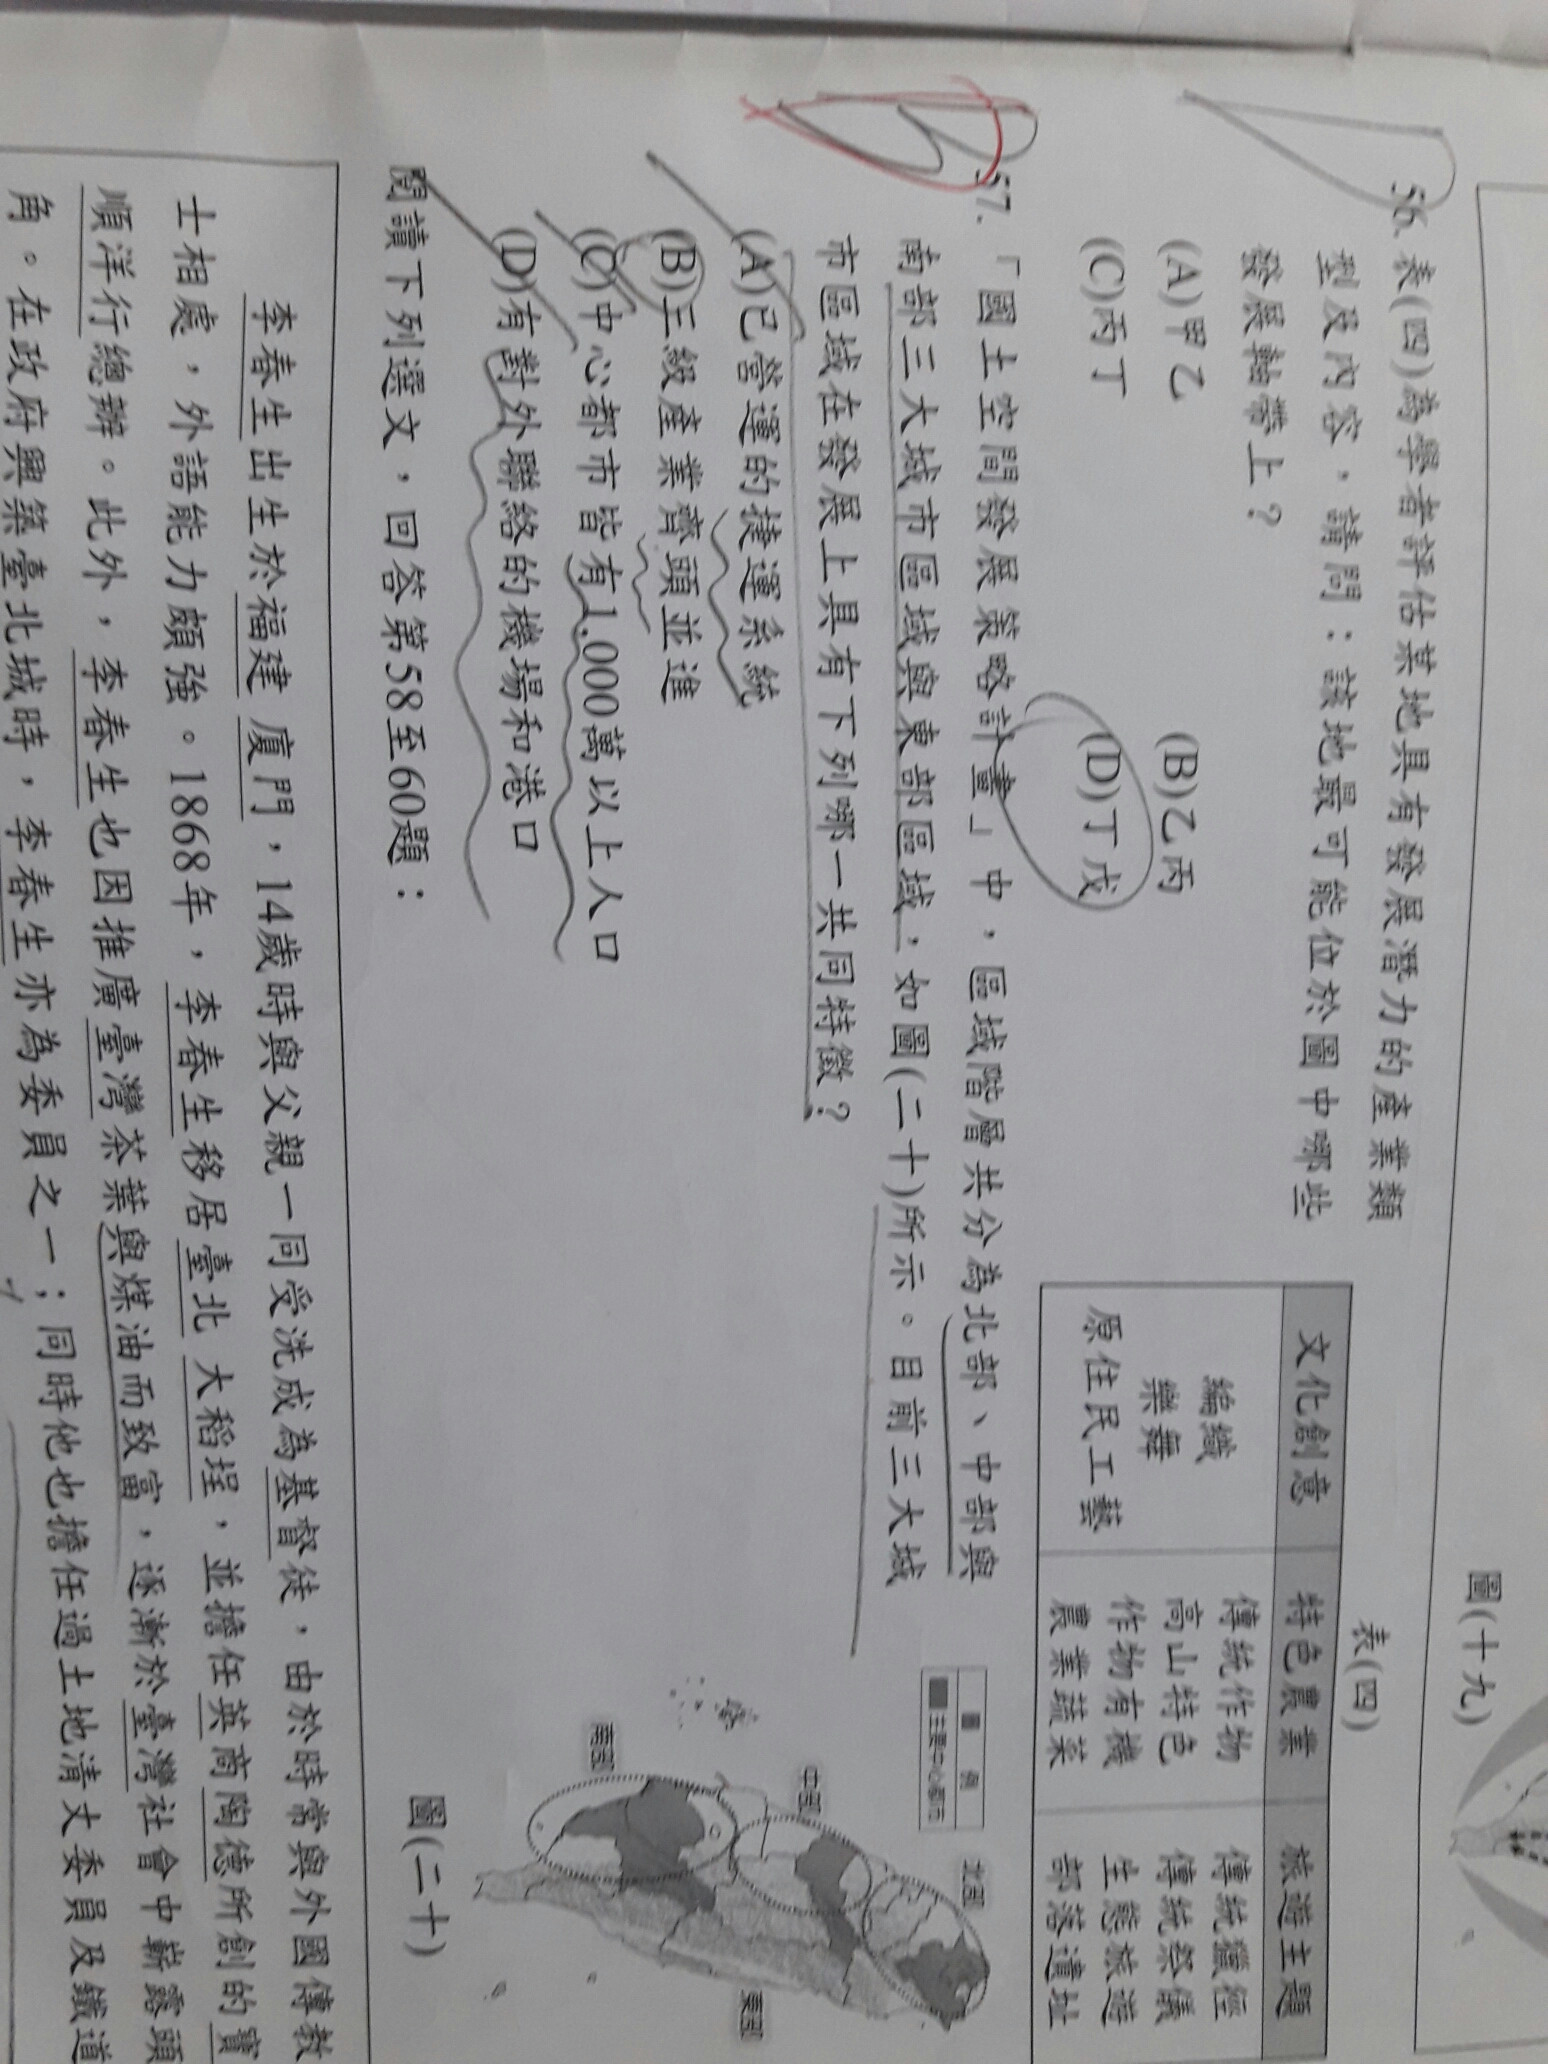 圖(十九)
56. 表(四)為學者評估某地具有發展潛力的產業類
型及內容，請問：該地最可能位於圖中哪些
發展軸帶上？
(A)甲乙 (B)乙丙
(C)丙丁 (D)丁戊
表(四)
文化創意 特色農業 旅遊主題
編織
樂舞
原住民工藝
傳統作物
高山特色
作物有機
農業蔬菜
傳統獵徑
傳統祭儀
生態旅遊
部落遺址
57. 「國土空間發展策略計畫」中，區域階層共分為北部、中部與
南部三大城市區域與東部區域，如圖(二十)所示。目前三大城
市區域在發展上具有下列哪一共同特徵？
(A)已營運的捷運系統
(B)三級產業齊頭並進
(C)中心都市皆有1,000萬以上人口
(D)有對外聯絡的機場和港口
圖例
主要中心都市
北部
中部
南部
東部
圖(二十)
閱讀下列選文，回答第58至60題：
李春生出生於福建 廈門，14歲時與父親一同受洗成為基督徒，由於時常與外國傳教
士相處，外語能力頗強。1868年，李春生移居臺北 大稻埕，並擔任英商陶德所創的寶
順洋行總辦。此外，李春生也因推廣臺灣茶葉與煤油而致富，逐漸於臺灣社會中嶄露頭
角。在政府興築臺北城時，李春生亦為委員之一；同時他也擔任過土地清丈委員及鐵道